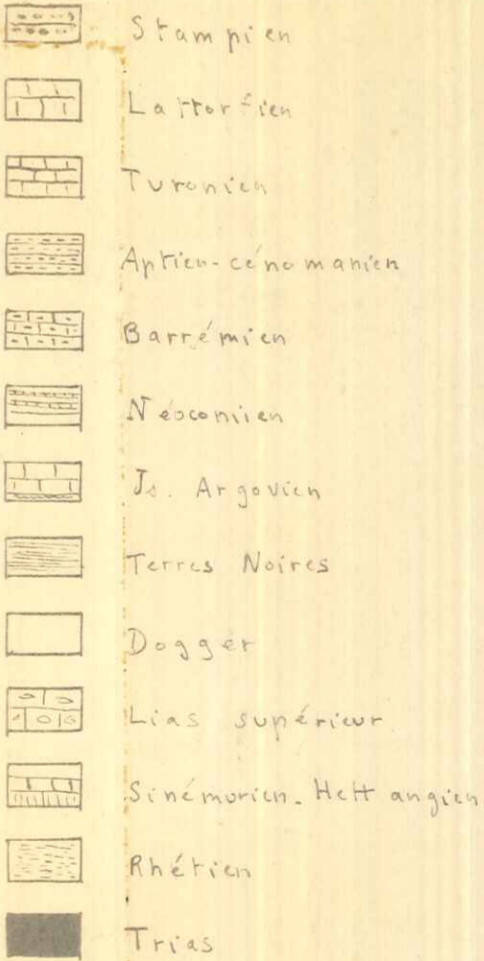 Stampien
Lattorfien
Turonien
Aptien-cénomanien
Barrémien
Néocomien
Js. Argovien
Terres Noires
Dogger
Lias supérieur
Sinémurien-Hettangien
Rhétien
Trias